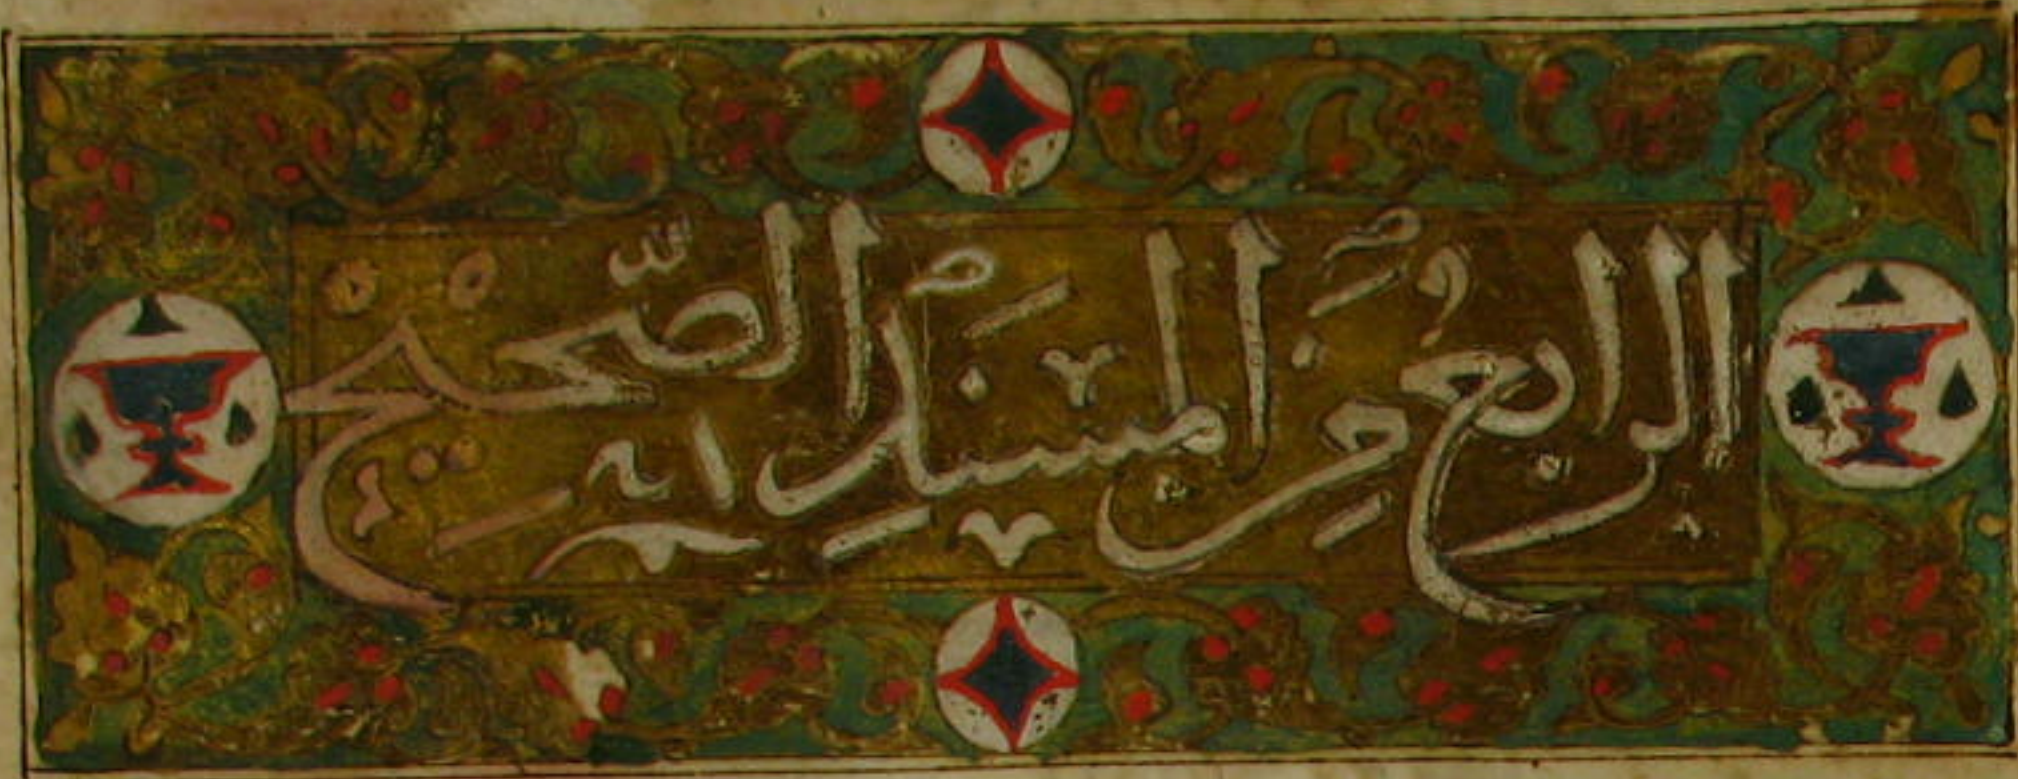 الرابع من المسند الصحيح